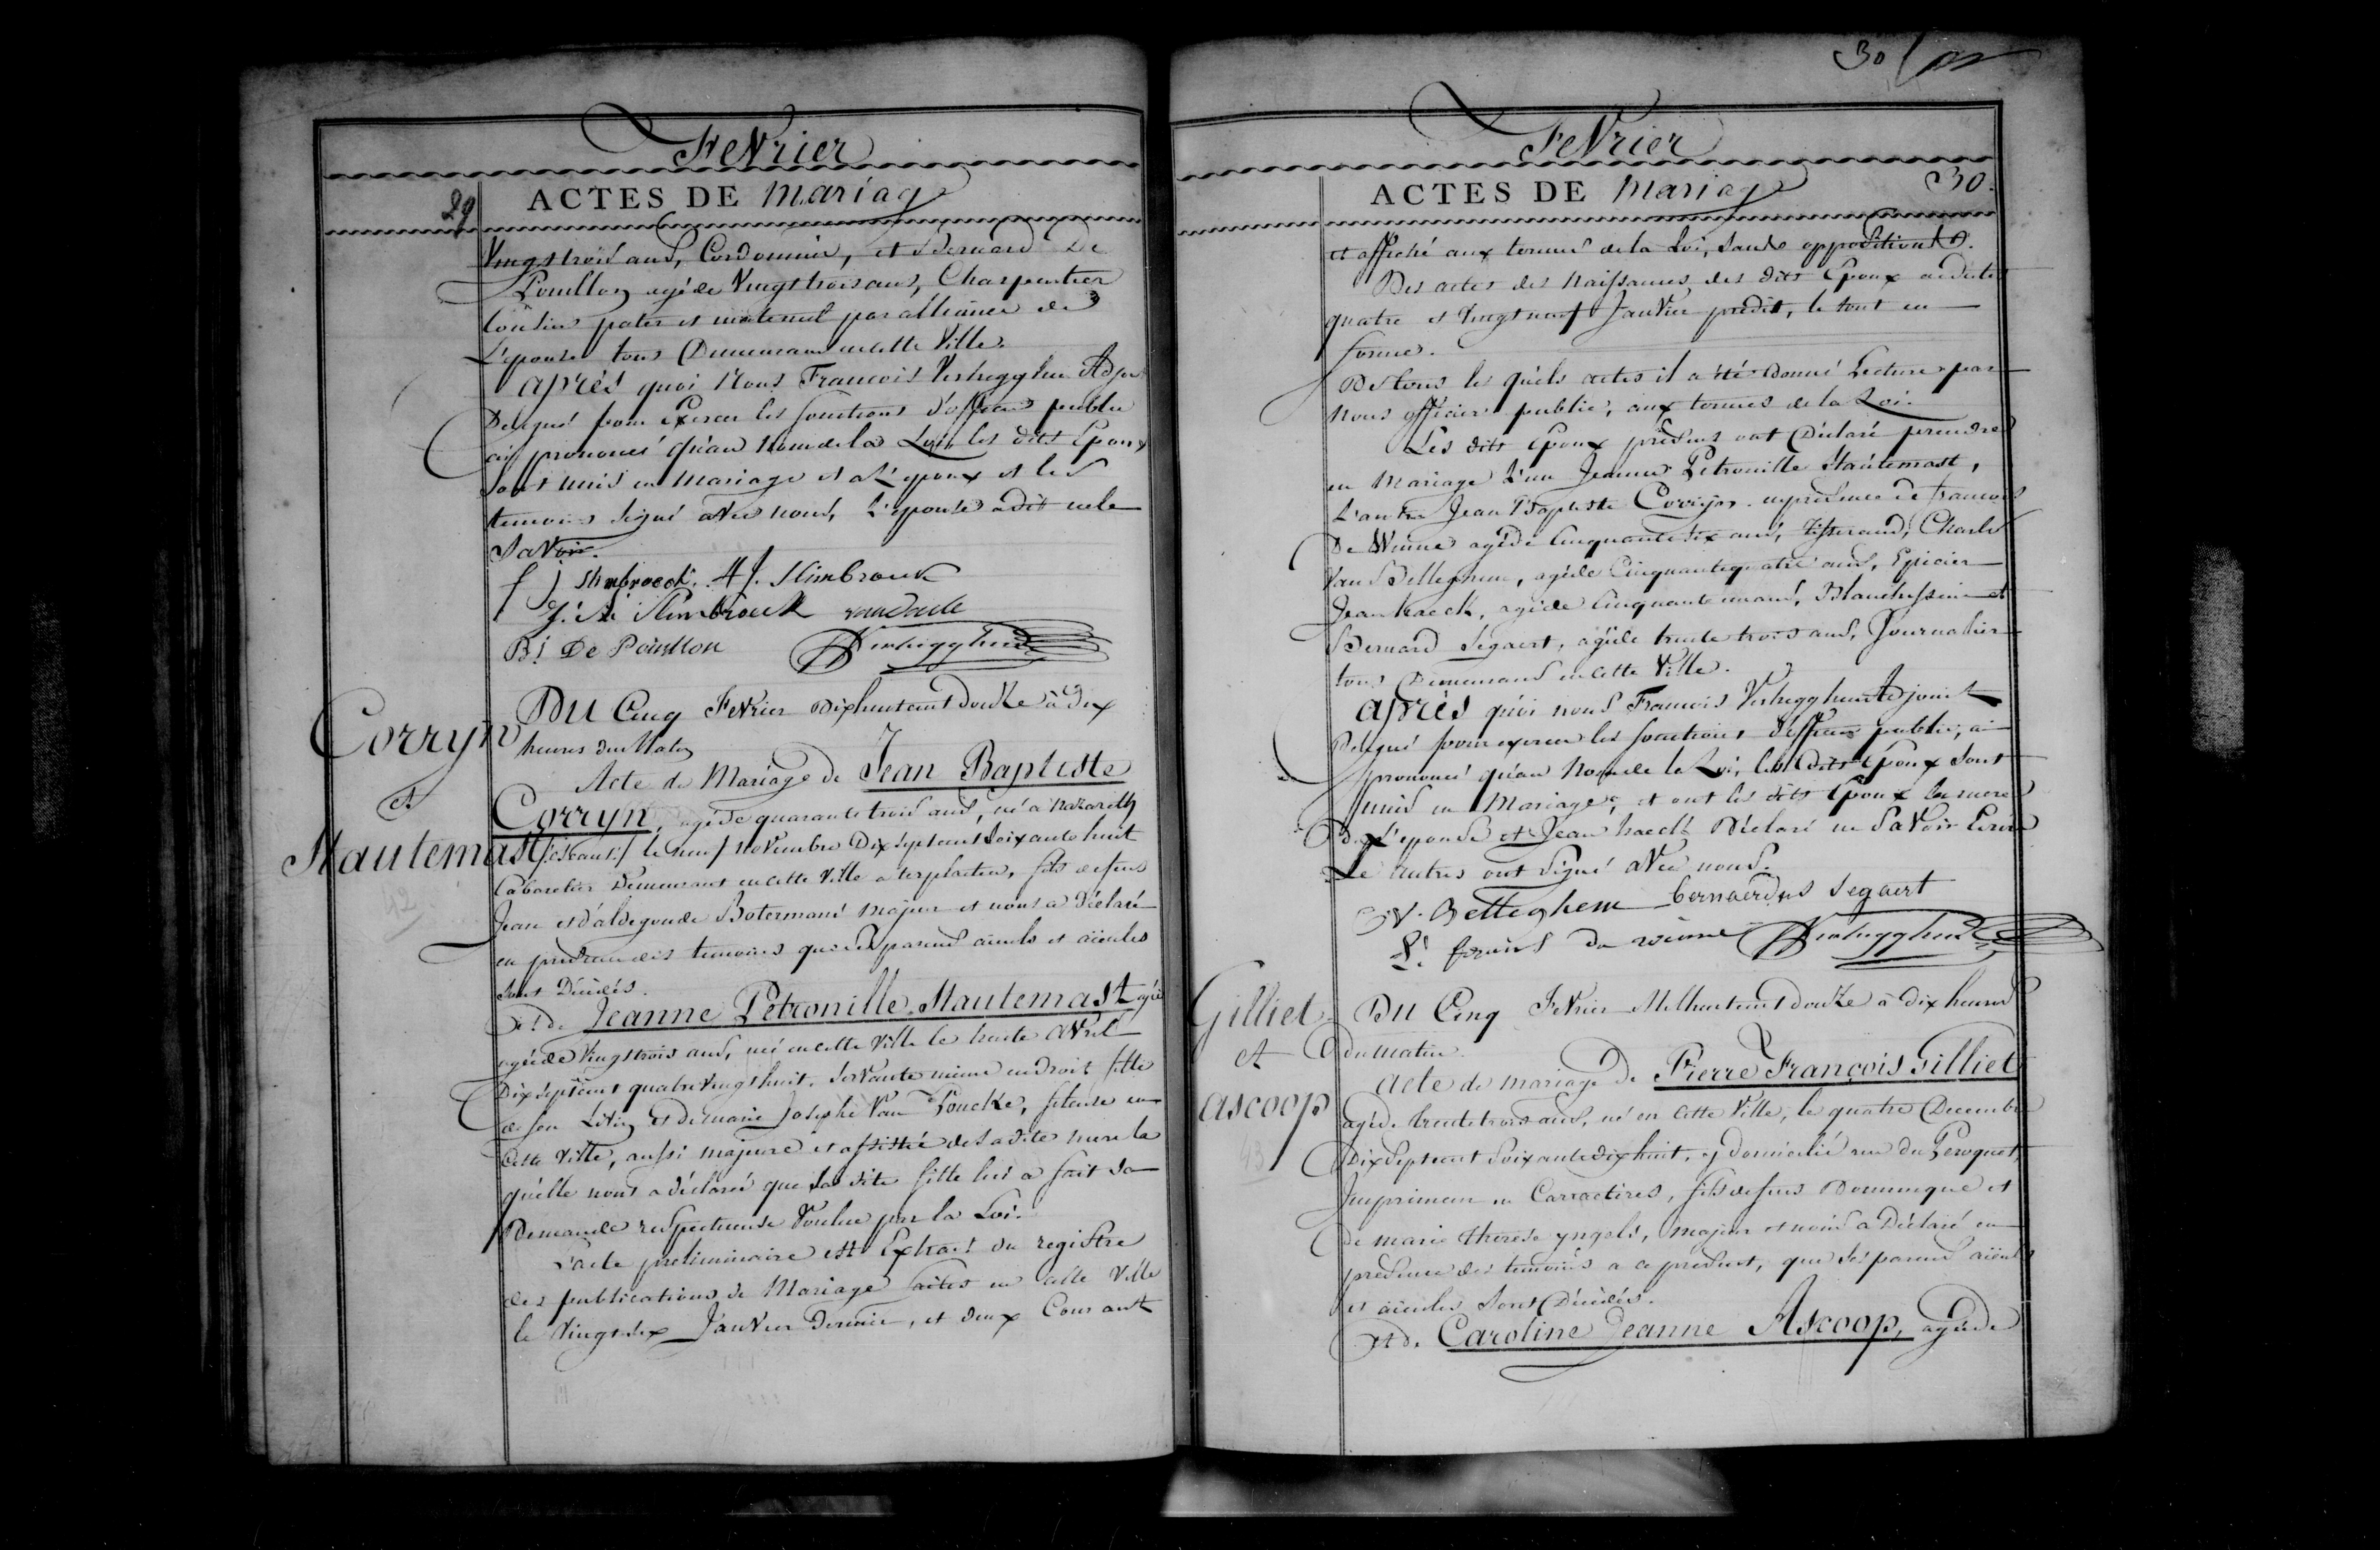 Fevrier
29
ACTES DE Mariag
Vingttrois ans, Cordonnier, et Bernard De
Pouillon agé de Vingttrois ans, Charpentier
Cousins pater et maternel par alliance de
L'epouse tous Demeurans en cette Ville.
après quoi Nous Francois Verhegghen Adjt
Delegué pour Exercer les fonctions d'officier public
ai prononcé qu'au nom de la Loi, les dits Epoux
sont unis en mariage et a L'epoux et les
temoins signé avec nous, L'epouse a dit ne le
Savoir.
Slimbroeck
B: De Pouillon
Verhegghen
Corryn
et
Mautemast
42
DU Cinq Fevrier Dixhuitcent Douze à Dix
heures du Matin
Acte de Mariage de Jean Baptiste
Corryn, agé de quarante trois ans, né à Nazareth
/:Escaut:/ le neuf Novembre Dixseptcent Soixante huit
Cabaretier Demeurant en cette Ville a terplaeten, fils de feus
Jean et d'aldegonde Botermans majeur et nous a Déclaré
en presence des temoins que ses parens aieuls et aieules
sont Décédés.
Et de Jeanne Petronille Mautemast agé
agée de Vingttrois ans, né en cette Ville le trente Avril
Dixseptcent quatrevingthuit, Servante même endroit fille
de feu Livin et de Marie Josephe Van Poucke, fileuse en
Cette Ville, aussi majeure et assistée de sadite mere la
quelle nous a déclaré que sa dite fille lui a fait sa
Demande respectueuse Voulue par la Loi.
L'acte preliminaire est Extrait du registre
des publications de Mariage faites en cette Ville
le Vingt six Janvier Dernier, et deux Courant
30
Fevrier
ACTES DE Mariag
30.
et affiché aux termes de la Loi, sans opposition.
Des actes des Naissances des dits Epoux
quatre et Vingtneuf Janvier predit, le tout en
forme.
De tous les quels actes il a été Donné Lecture par
Nous officier public, aux termes de la Loi.
Les dits Epoux présens ont Déclaré prendre
en Mariage L'un Jeanne Petronille Mautemast,
L'autre Jean Baptiste Corryn. en presence de Francois
De Winne agé de Cinquante six ans, tisserand, Charles
Van Belleghem, agé de Cinquantequatre ans, Epicier
Jean haeck, agé de Cinquante un ans, Blanchisseur et
Bernard Segaert, agé de trente trois ans, Journalier
tous Demeurans en cette Ville.
après quoi nous Francois Verhegghen Adjoint
Delegué pour exercer les fonctions d'officier public, ai
prononcé qu'au Nom de la Loi, les dits Epoux sont
unis en Mariage, et ont les dits Epoux la mere
de L'epouse et Jean haeck Déclaré ne Savoir Ecrire
Le autres ont Signé avec nous.
v. Belleghem bernaerdus Segaert
de winne Verhegghen
Gilliet
et
Ascoop
43
DU Cinq Fevrier Milhuitcent douze à Dix heures
du matin
Acte de mariage de Pierre François Gilliet
agé de trente trois ans, né en cette Ville, le quatre Decembre
Dixseptcent Soixante dix huit, y domicilié rue du Peroquet,
Imprimeur en Carractères, fils de feus Dominique et
de marie therese yngels, majeur et nous a Déclaré en
présence des temoins a ce présent, que ses parens aieuls
et aieules sont Décédés.
Et de Caroline Jeanne Ascoop, agée de